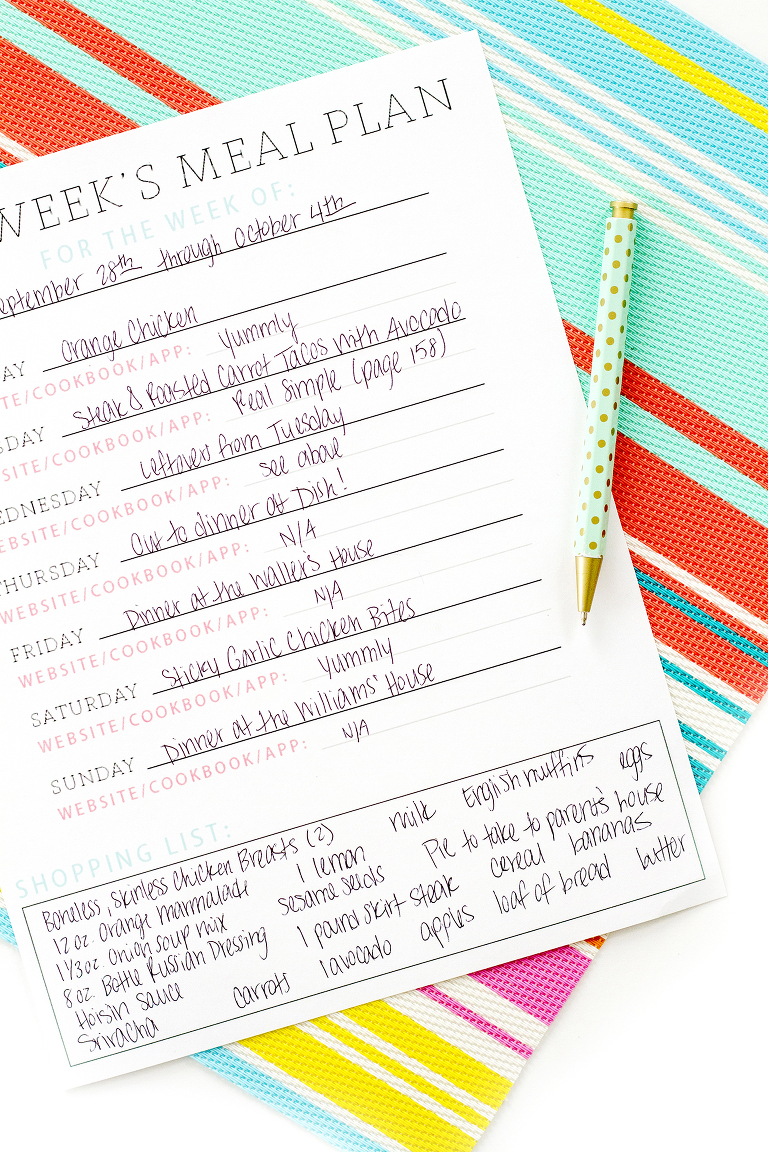 WEEK'S MEAL PLAN
FOR THE WEEK OF:
eptember 28th through October 4th
AY Orange Chicken
TE/COOKBOOK/APP: Yummly
SDAY Steak & Roasted Carrot Tacos with Avocado
SITE/COOKBOOK/APP: Real Simple (page 158)
EDNESDAY Leftovers from Tuesday
EBSITE/COOKBOOK/APP: see above
THURSDAY Out to dinner at Dish!
WEBSITE/COOKBOOK/APP: N/A
FRIDAY Dinner at the Waller's House
WEBSITE/COOKBOOK/APP: N/A
SATURDAY Sticky Garlic Chicken Bites
WEBSITE/COOKBOOK/APP: Yummly
SUNDAY Dinner at the Williams' House
WEBSITE/COOKBOOK/APP: N/A
SHOPPING LIST:
Boneless, skinless Chicken Breasts (2) milk English muffins eggs
12 oz. Orange Marmalade 1 lemon Pie to take to parent's house
1 1/3 oz. Onion soup mix sesame seeds cereal bananas
8 oz. Bottle Russian Dressing 1 pound skirt steak loaf of bread butter
Hoisin sauce carrots 1 avocado apples
Sriracha